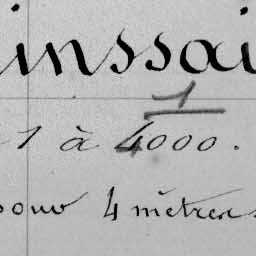 inssai
1
1 à 4000.
pour 4 mètres